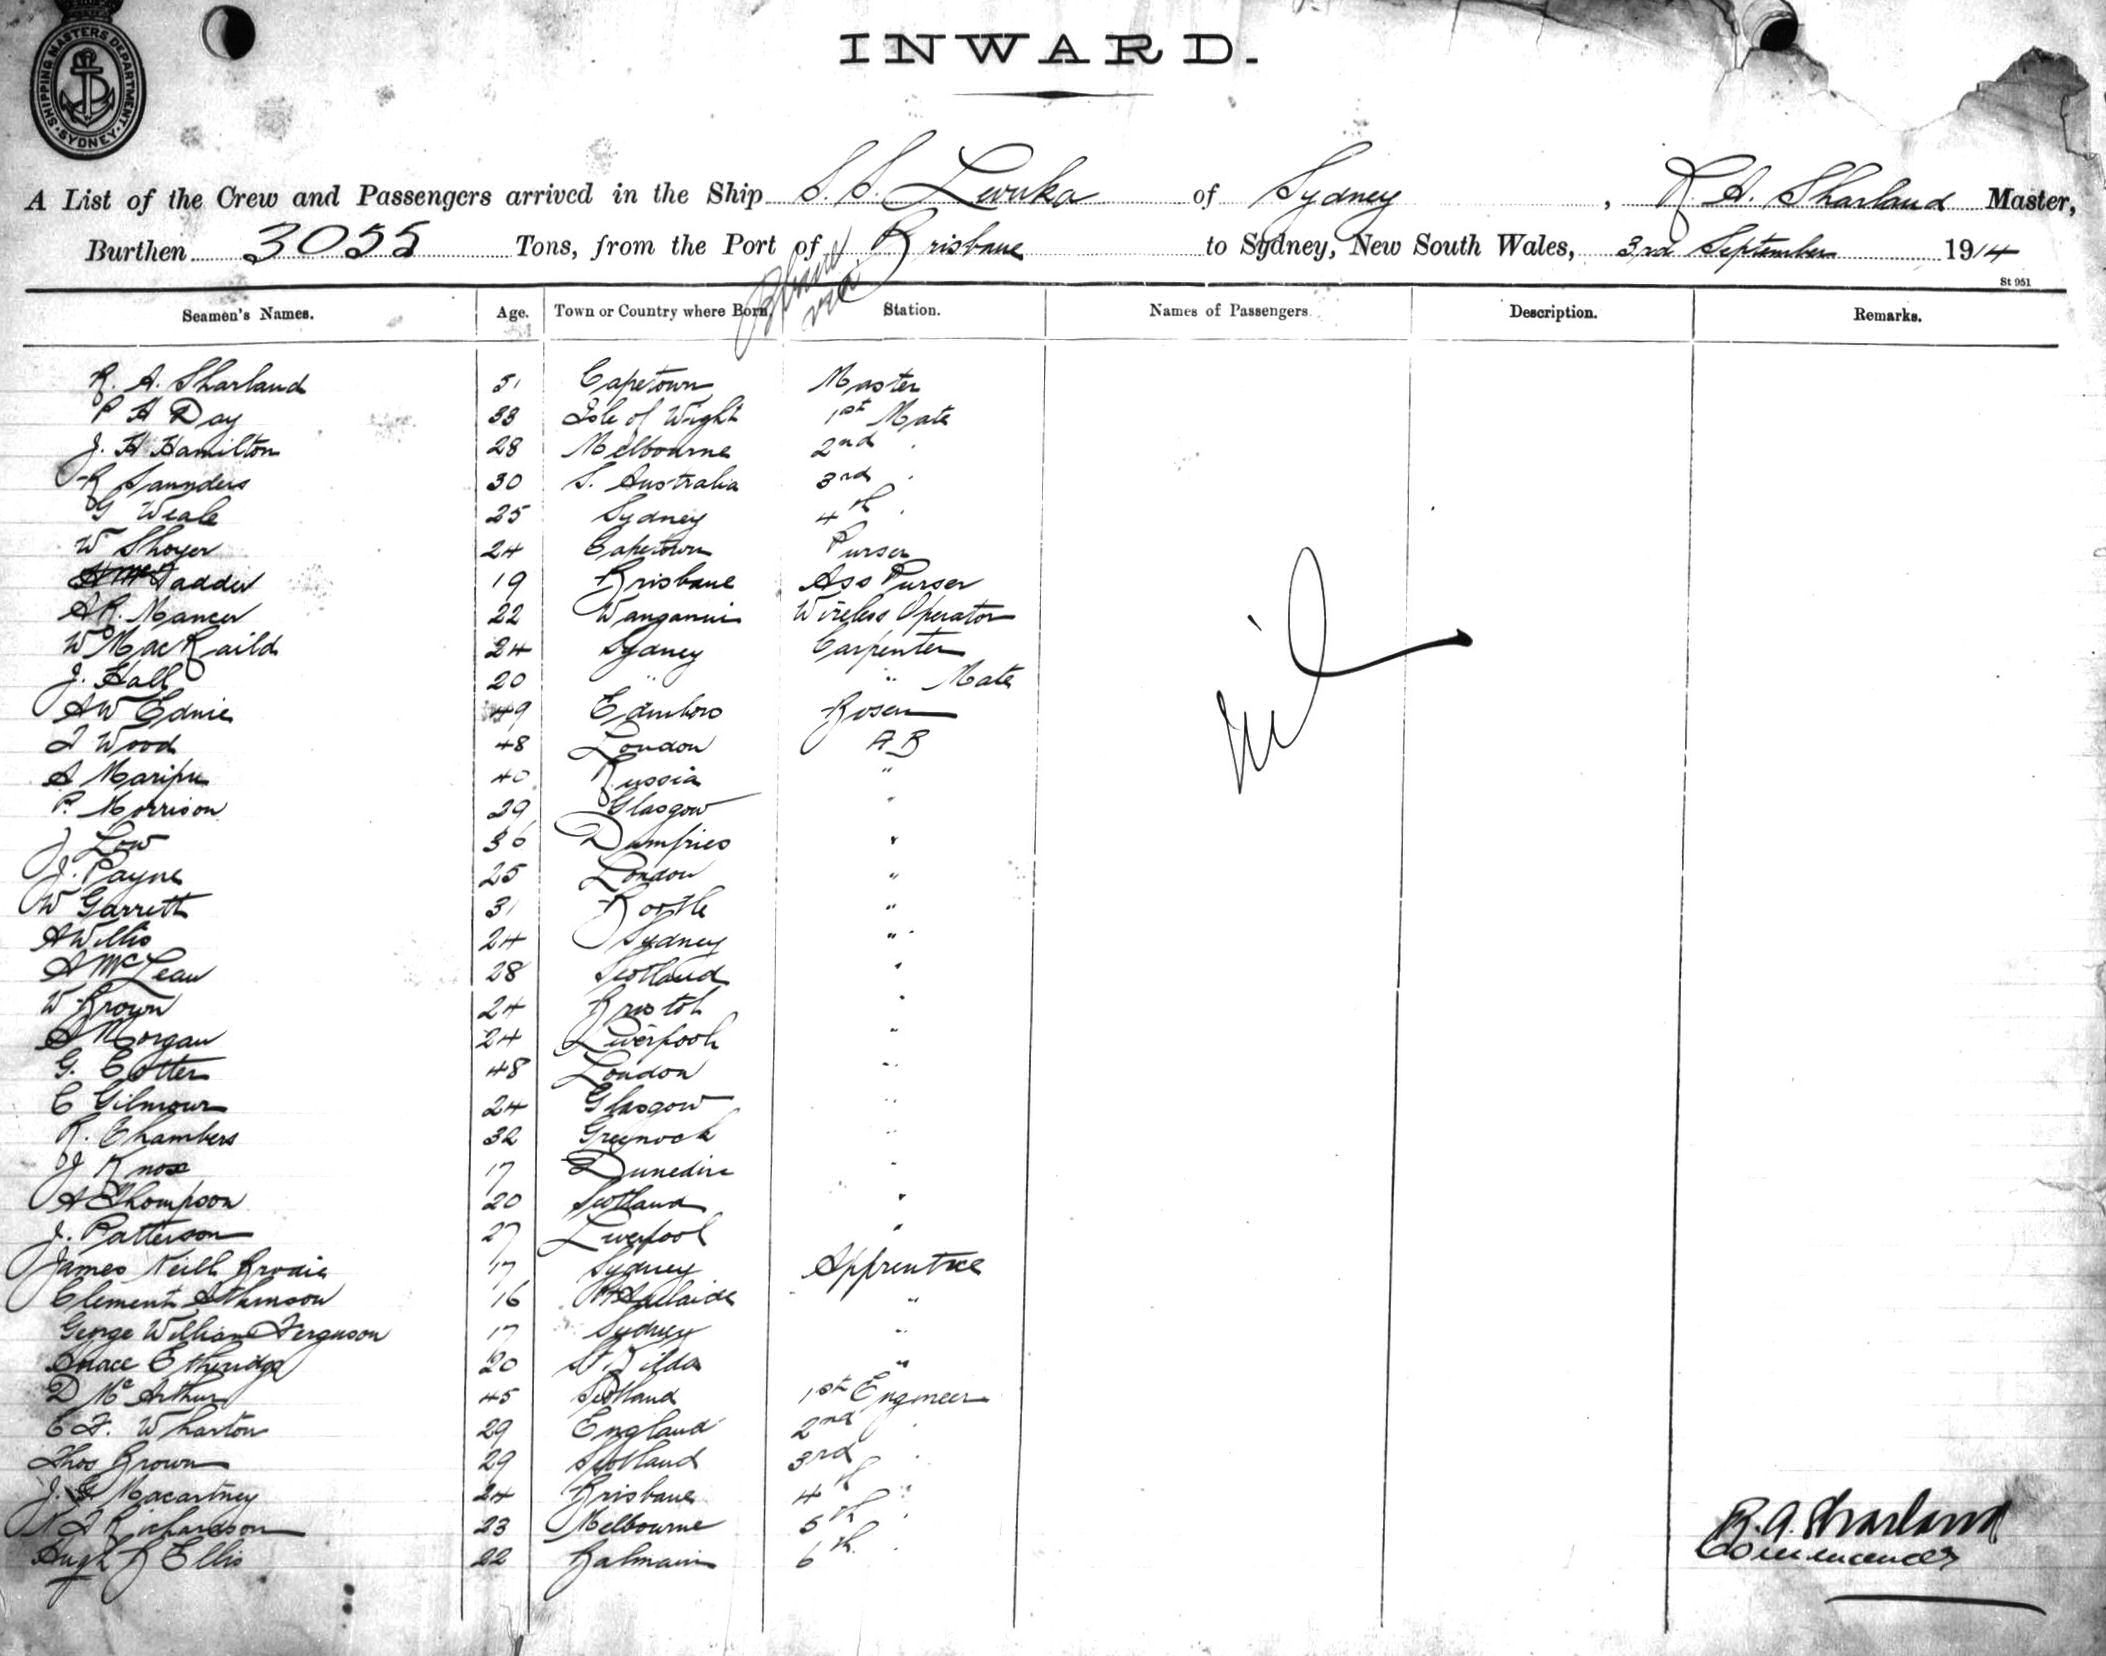 SHIPPING MASTERS DEPARTMENT. SYDNEY.
INWARD.
A List of the Crew and Passengers arrived in the Ship S.S. Levuka of Sydney, R. A. Sharland Master,
Burthen 3055 Tons, from the Port of Brisbane to Sydney, New South Wales, 3rd September 1914
via
St 951
Seamen's Names. Age. Town or Country where Born. Station. Names of Passengers Description. Remarks.
R. A. Sharland 51 Capetown Master
P H Day 33 Isle of Wright 1st Mate
J. H Hamilton 28 Melbourne 2nd "
R Saunders 30 S. Australia 3rd "
G Weale 25 Sydney 4th "
W Shoyer 24 Capetown Purser
19 Brisbane Ass Purser
A R. Mancer 22 Wanganui Wireless Operator
W MacRaild 24 Sydney Carpenter
J. Hall 20 " " Mate
A W Ednie 49 Edinboro Bosen
T Wood 48 London A B
A Maripu 40 Russia "
P. Morrison 29 Glasgow "
J Low 36 Dumfries "
J. Payne 25 London "
W Garrett 31 Bootle "
A Willis 24 Sydney "
A McLean 28 Scotland "
W Brown 24 Bristol "
A Morgan 24 Liverpool "
G. Cotter 48 London "
C Gilmour 24 Glasgow "
R. Chambers 32 Greenock "
J Knox 17 Dunedin "
A Thompson 20 Scotland "
J. Patterson 27 Liverpool "
James Neill Brodie 17 Sydney Apprentice
Clement Atkinson 16 Pt Adelaide "
George William Ferguson 17 Sydney "
Horace Etheridge 20 St. Kilda "
D McArthur 45 Scotland 1st Engineer
C F. Wharton 29 England 2nd "
Thos Brown 29 Scotland 3rd "
J. Macartney 24 Brisbane 4th "
N F Richardson 23 Melbourne 5th "
Hugh B Ellis 22 Balmain 6th "
Nil
R. A. Sharland
Commander